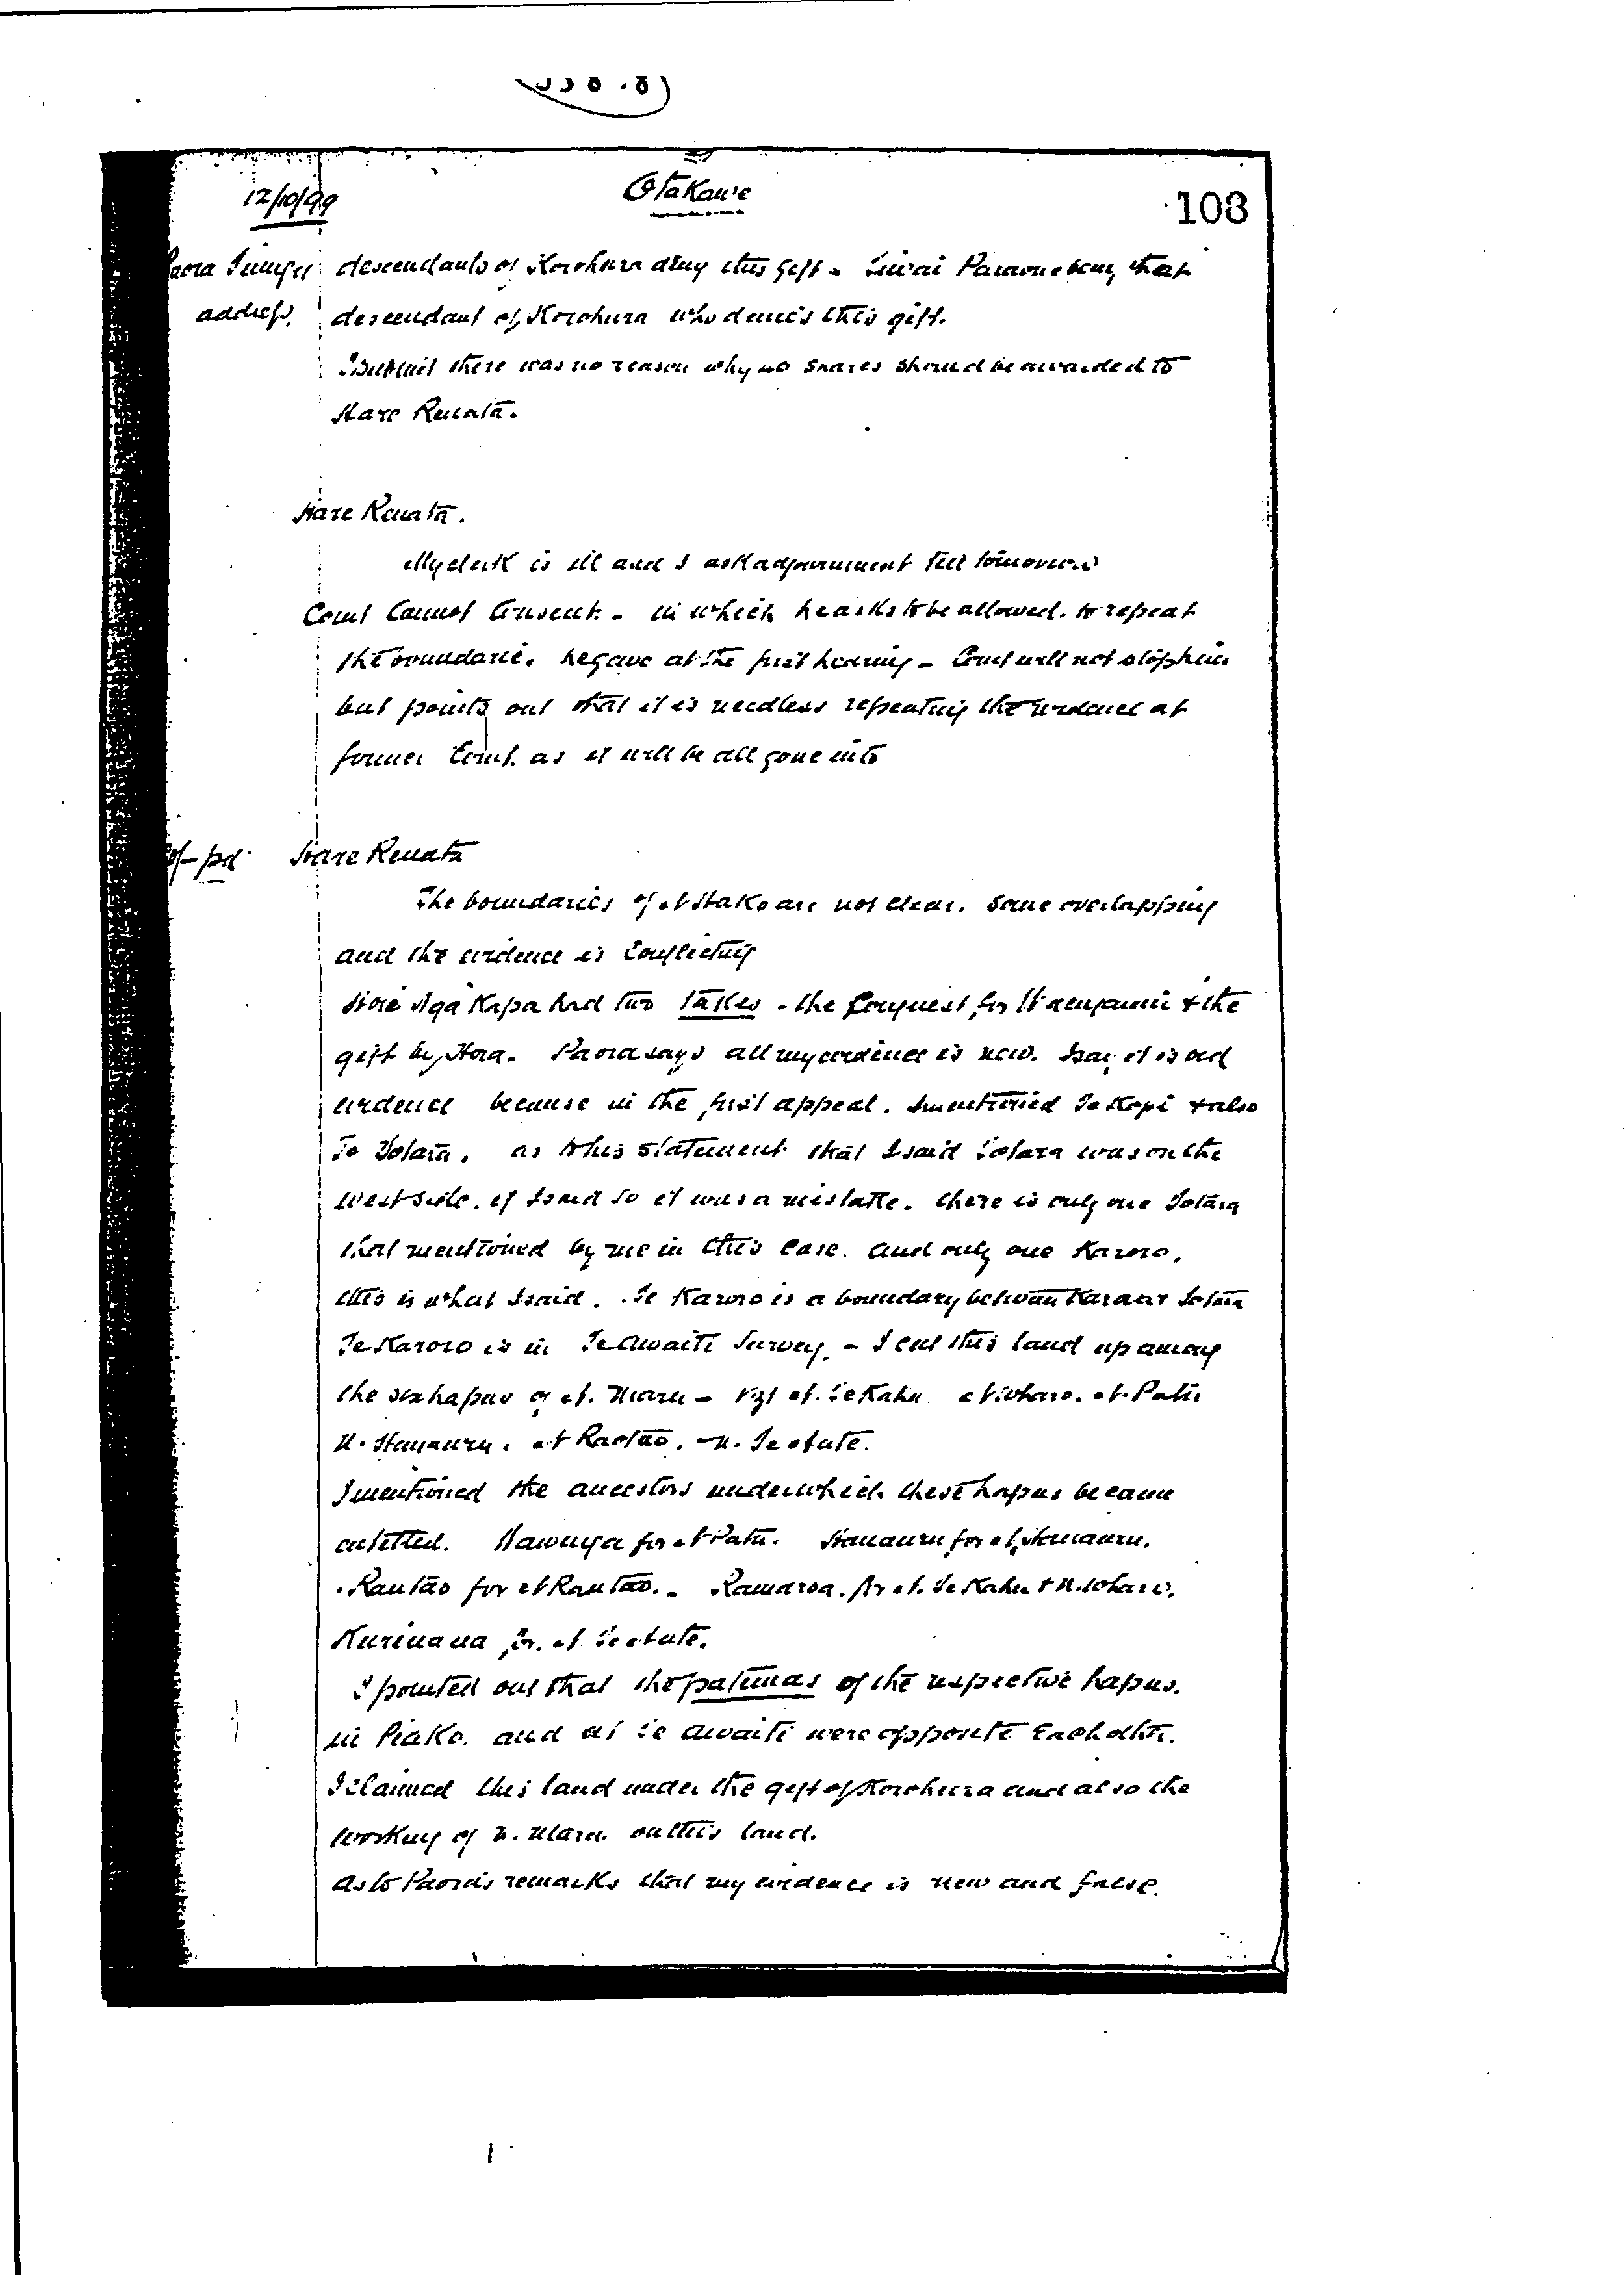 12/10/99 Otakawe 103
Paora Tiunga descendants of Korohura deny this gift - being that
address. descendant of Korohura who denies this gift.
I submit there was no reason why no shares should be awarded to
Hare Renata.
Hare Renata.
My clerk is ill and I ask adjournment till tomorrow
Court cannot consent. - in which he asks to be allowed. to repeat
the boundaries he gave at the first hearing - Court will not stop him
but points out that it is needless repeating the evidence at
former Court. as it will be all gone into
pd. Hare Renata
The boundaries of N Hako are not clear. Some overlapping
and the evidence is conflicting
Hore Nga Kapa had two Takes - the Conquest for & the
gift by Hora. Paora says all my evidence is new. I say it is old
evidence because in the first appeal. I mentioned Te Kopi & also
Te Totara. as to his statement that I said Totara was on the
West side. if I said so it was a mistake. there is only one Totara
that mentioned by me in this case. and only one Karoro.
this is what I said. Te Karoro is a boundary between & Totara
Te Karoro is in Te Awaiti Survey. - I cut this land up among
the six hapus of N. Maru - viz N. Te Kahu N Whare. N. Patu
N. Hanauru. N Rautao. N. Te Atute.
I mentioned the ancestors under which these hapus became
entitled. for N Patu. Hanauru for N. Hanauru.
Rautao for N Rautao. - for N. Te Kahu & N. Whare.
Kurinana for N. Te Atute.
I pointed out that the patunas of the respective hapus.
in Piako. and at Te Awaiti were opposite each other.
I claimed this land under the gift of Korohura and also the
working of N. Maru. on this land.
As to Paora's remarks that my evidence is new and false.